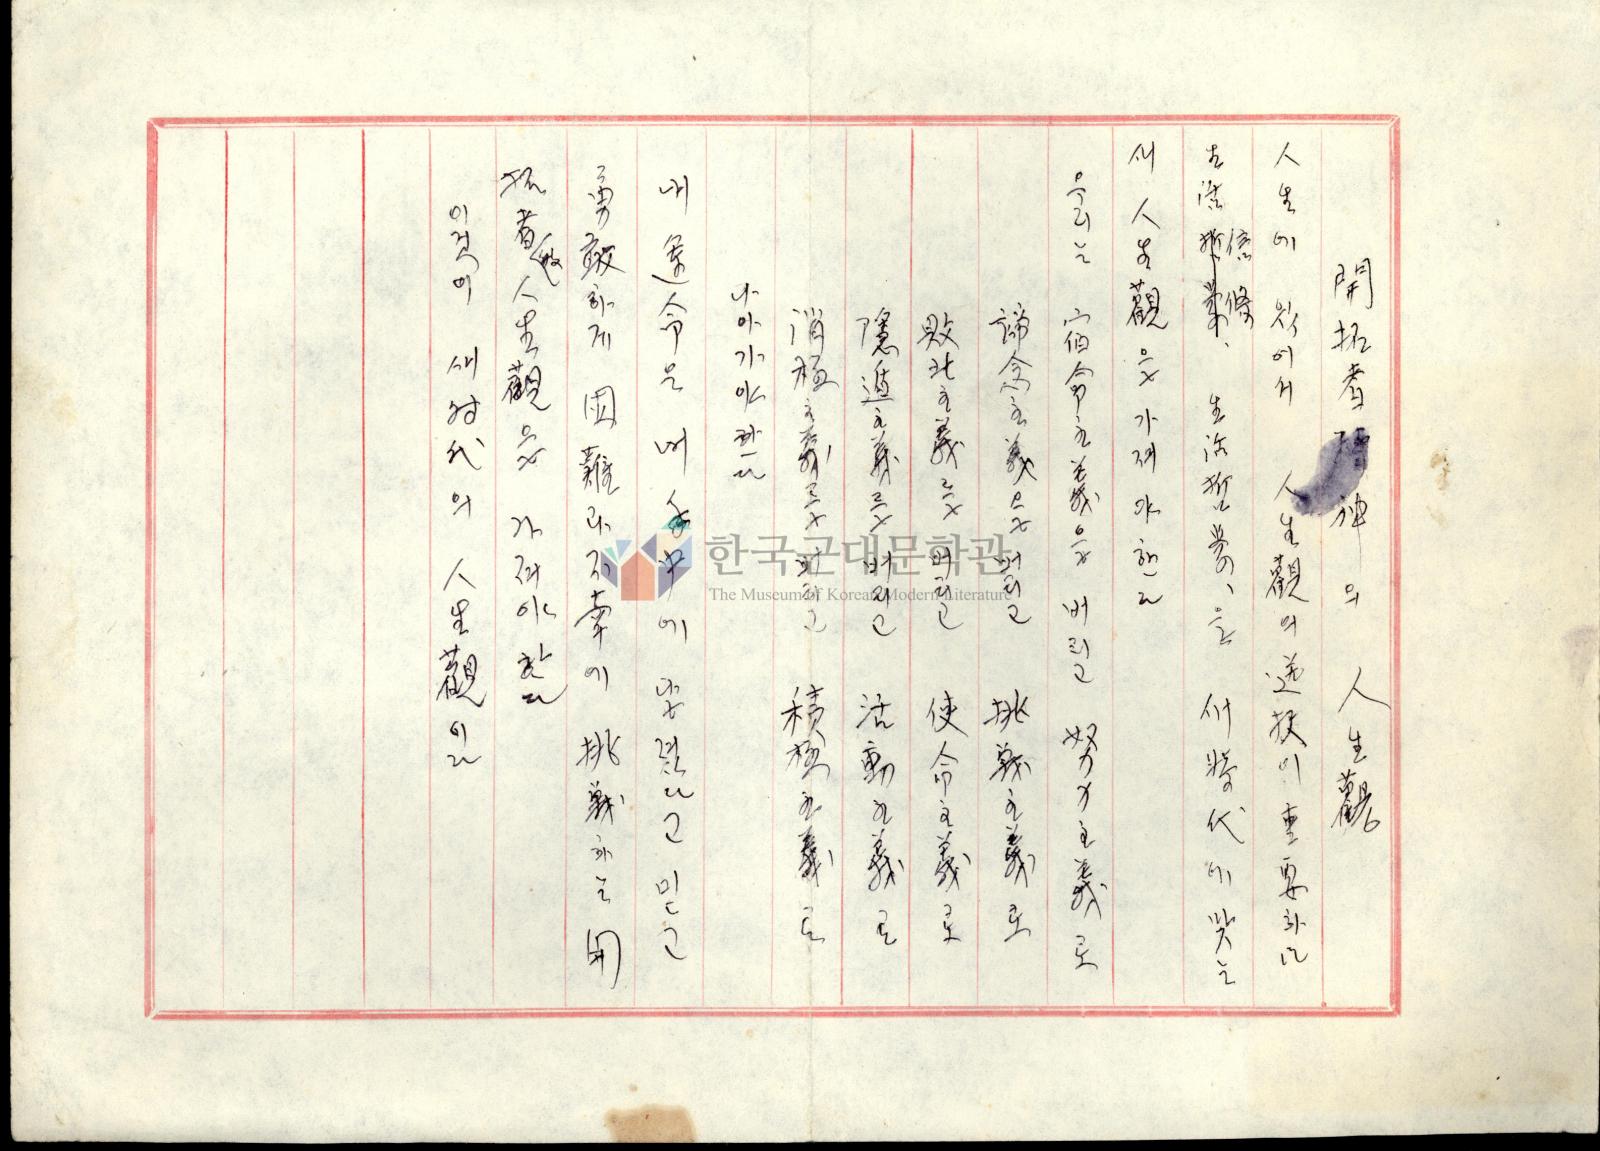 開拓者精神의 人生觀
人生에 있어서 人生觀의 選擇이 重要하다
生活信條、生活哲學、을 새 時代에 맞는
새 人生觀을 가져야 한다
우리는 宿命主義을 버리고 努力主義로
諦念主義을 버리고 挑戰主義로
敗北主義를 버리고 使命主義로
隱遁主義를 버리고 活動主義로
消極主義를 버리고 積極主義로
나아가야 한다
내 運命은 내 手中에 달렸다고 믿고
勇敢하게 困難과 不幸에 挑戰하는 開
拓者的 人生觀을 가져야 한다
이것이 새 時代의 人生觀이다
한국근대문학관
The Museum of Korean Modern Literature